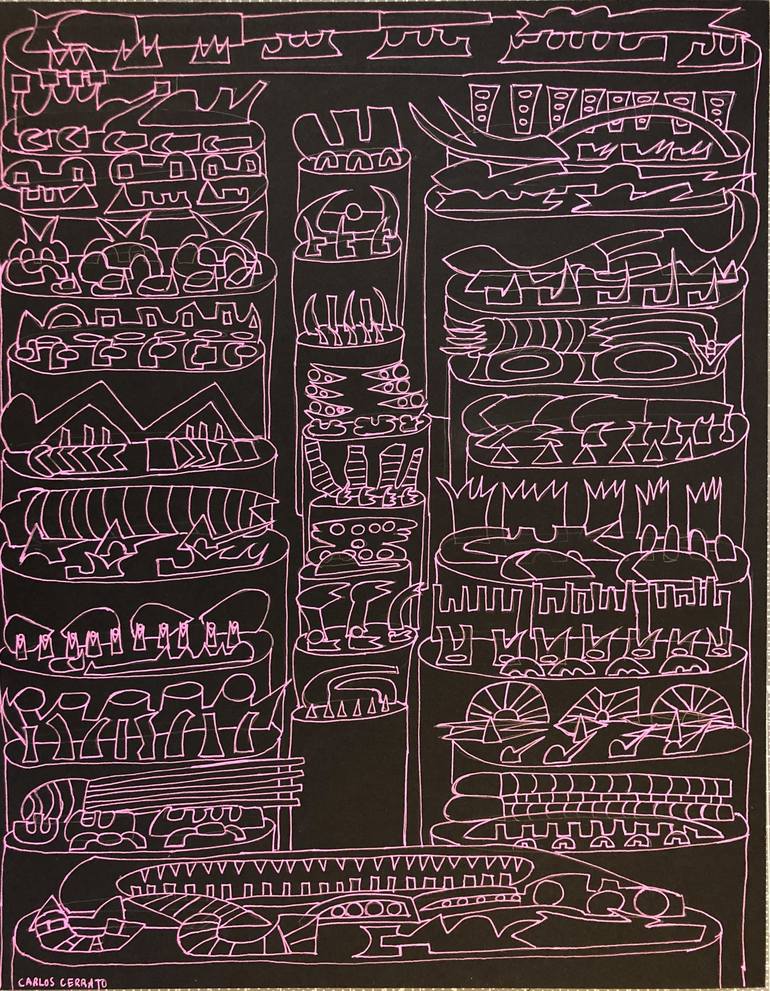 CARLOS CERRATO